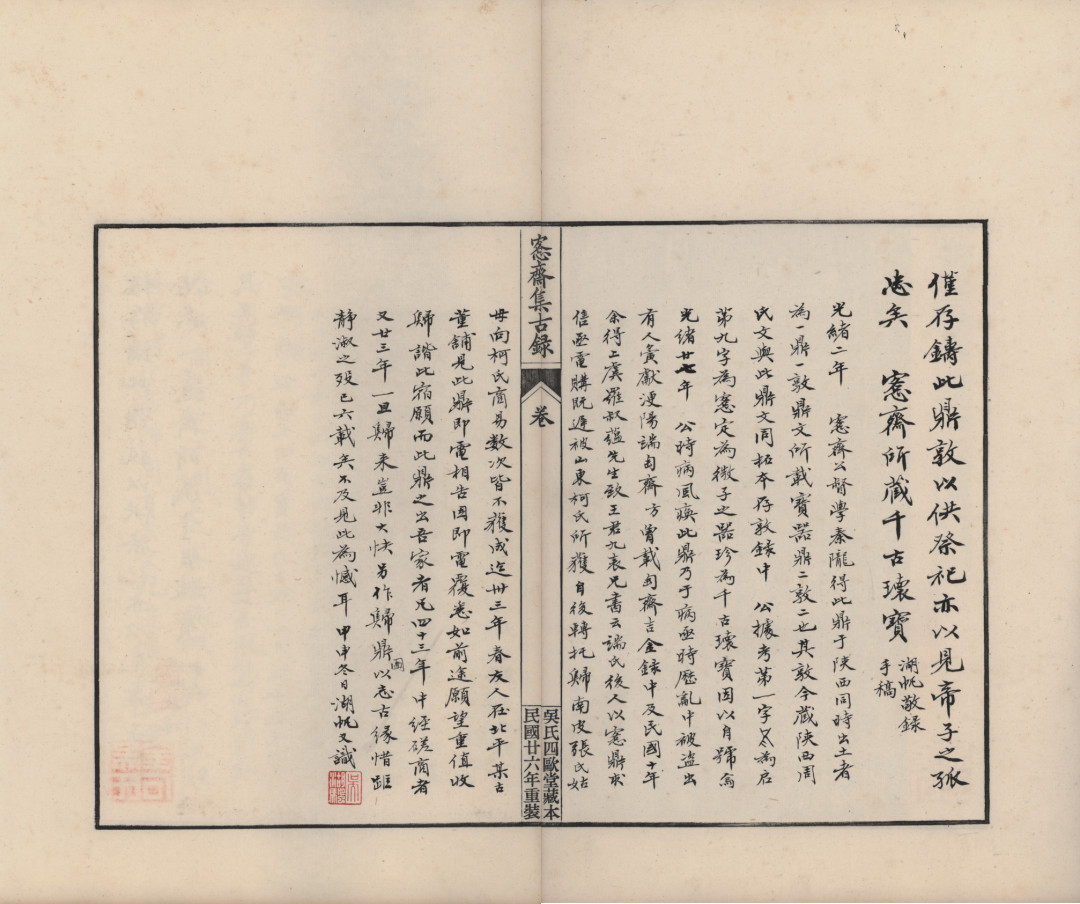 僅存鑄此鼎敦以供祭祀亦以見帝子之孤
忠矣　愙齋所藏千古瓌寶
湖帆敬錄
手稿
光緒二年　愙齋公督學秦隴得此鼎于陝西同時出土者
為一鼎一敦鼎文所載寶器鼎二敦二也其敦今藏陝西周
氏文與此鼎文同拓本存敦錄中　公據考第一字為启
第九字為愙定為微子之器珍為千古瓌寶因以自號焉
光緒廿七年　公時病風痪此鼎乃于病亟時歷亂中被盜出
有人賫獻浭陽端匋齋方曾載匋齋吉金錄中及民國十年
余得上虞羅叔蘊先生致王君九表兄書云端氏後人以愙鼎求
售亟電購既遲被山東柯氏所獲自後轉托歸南皮張氏姑
母向柯氏商易數次皆不獲成迄卅三年春友人在北平某古
董舖見此鼎即電相告因即電覆悉如前途願望重值收
歸諧此宿願而此鼎之出吾家者凡四十三年中經磋商者
又廿三年一旦歸來豈非大快另作歸鼎圖以志古緣惜
靜淑之歿已六載矣不及見此為憾耳　甲申冬日湖帆又識
愙齋集古錄
卷
吳氏四歐堂藏本
民國廿六年重裝